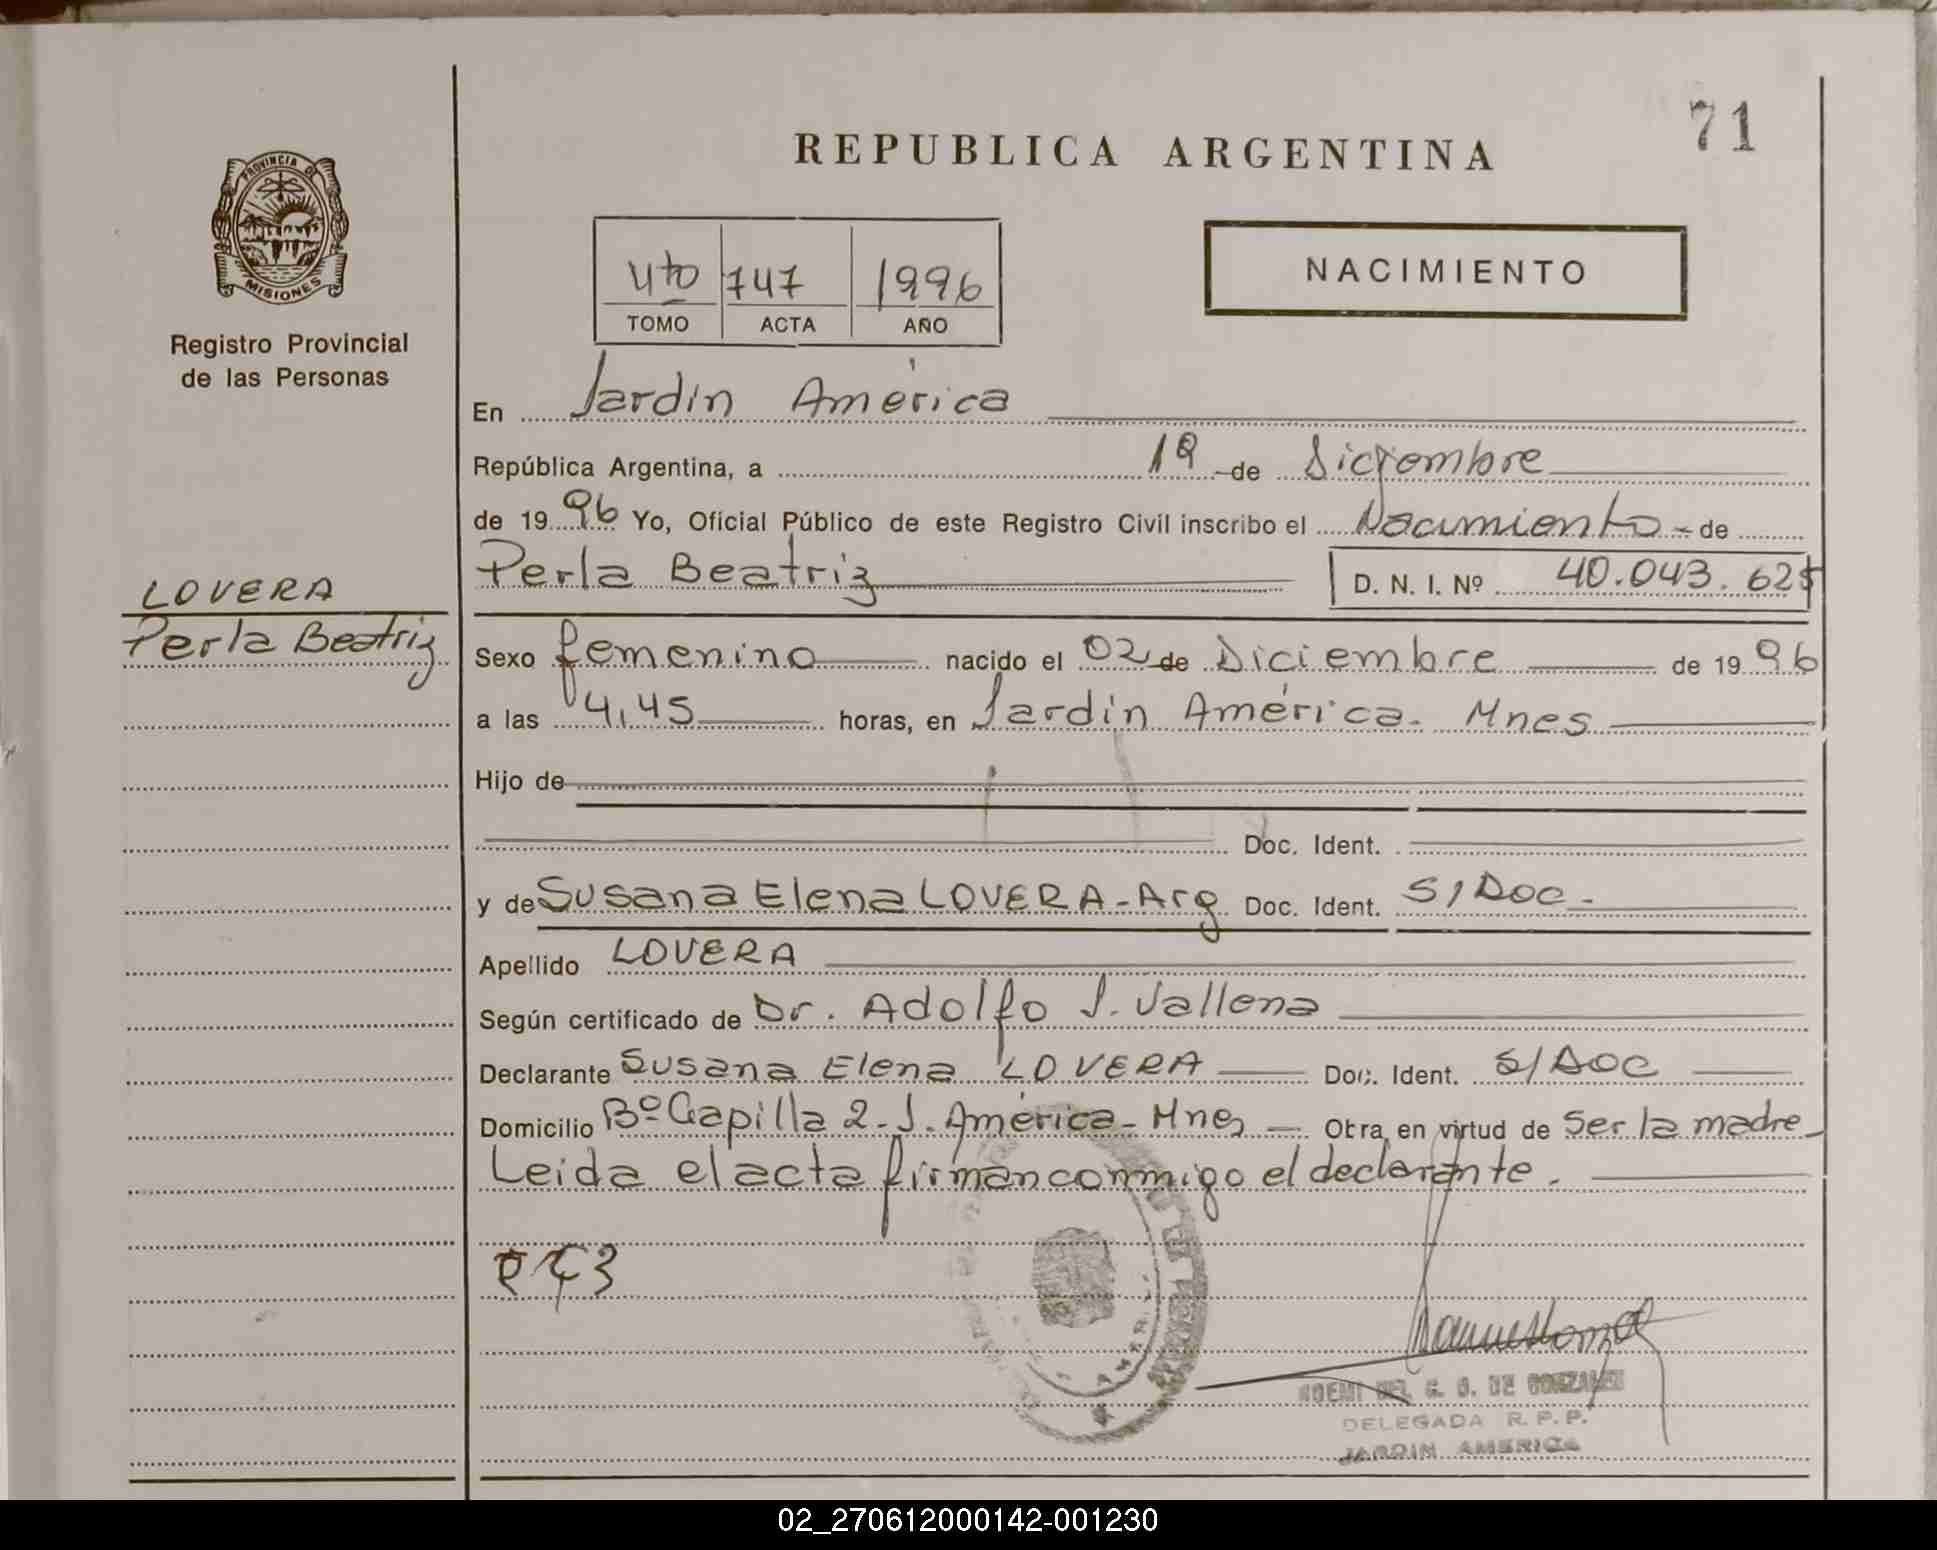 71
REPUBLICA ARGENTINA
PROVINCIA DE
MISIONES
Registro Provincial
de las Personas
4to 747 1996
TOMO ACTA AÑO
NACIMIENTO
En Jardin América
República Argentina, a 19 de Diciembre
de 1996 Yo, Oficial Público de este Registro Civil inscribo el Nacimiento - de
Perla Beatriz D. N. I. Nº 40.043.625
LOVERA
Perla Beatriz
Sexo femenino nacido el 02 de Diciembre de 1996
a las 4,45 horas, en Jardin América. Mnes
Hijo de
Doc. Ident.
y de Susana Elena LOVERA - Arg Doc. Ident. S/Doc.-
Apellido LOVERA
Según certificado de Dr. Adolfo J. Vallena
Declarante Susana Elena LOVERA Doc. Ident. S/Doc
Domicilio Bº Capilla 2 - J. América - Mnes Otra, en virtud de Ser la madre
Leida el acta firman conmigo el declarante.
NOEMI DEL C. G. DE GONZALEZ
DELEGADA R. P. P.
JARDIN AMERICA
02_270612000142-001230